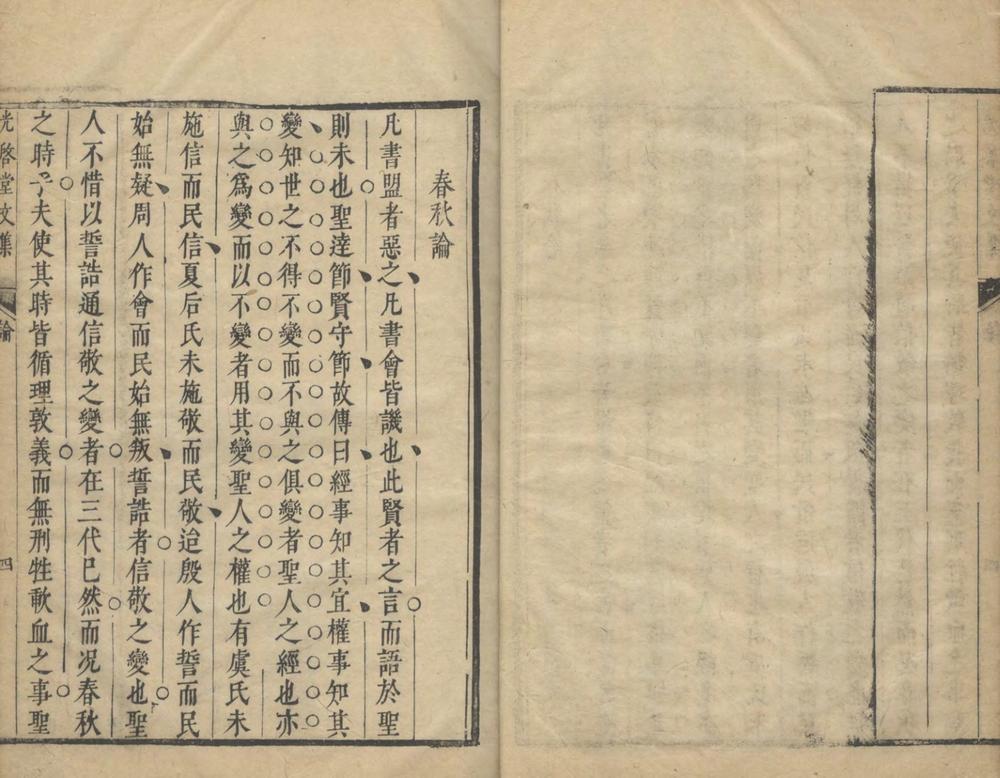 春秋論
凡書盟者惡之凡書會皆譏也此賢者之言而語於聖
則未也聖達節賢守節故傳曰經事知其宜權事知其
變知世之不得不變而不與之俱變者聖人之經也亦
與之爲變而以不變者用其變聖人之權也有虞氏未
施信而民信夏后氏未施敬而民敬迨殷人作誓而民
始無疑周人作會而民始無叛誓誥者信敬之變也聖
人不惜以誓誥通信敬之變者在三代已然而况春秋
之時乎夫使其時皆循理敦義而無刑牲歃血之事聖
光啓堂文集
論
四